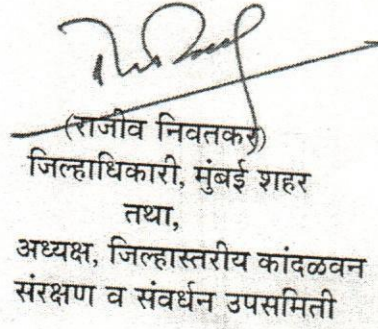 (राजीव निवतकर)
जिल्हाधिकारी, मुंबई शहर
तथा,
अध्यक्ष, जिल्हास्तरीय कांदळवन
संरक्षण व संवर्धन उपसमिती